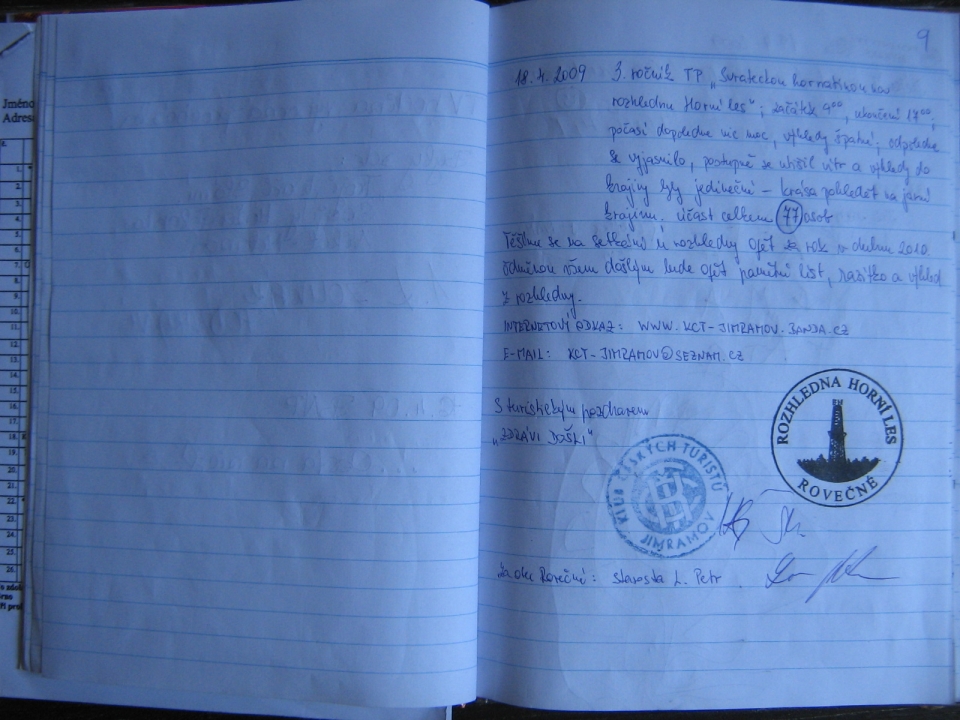 9
18.4.2009 3. ročník TP „Svrateckou hornatinou na
rozhlednu Horní les"; začátek 9⁰⁰, ukončení 17⁰⁰,
počasí dopoledne nic moc, výhledy špatné, odpoledne
se vyjasnilo, postupně se utišil vítr a výhledy do
krajiny byly jedinečné – krása pohledět na jarní
krajinu. Účast celkem 77 osob
Těšíme se na setkání u rozhledny opět za rok v dubnu 2010.
Odměnou všem došlým bude opět pamětní list, razítko a výhled
z rozhledny.
INTERNETOVÝ ODKAZ: WWW.KCT-JIMRAMOV.BANDA.CZ
E-MAIL: KCT-JIMRAMOV@SEZNAM.CZ
S turistickým pozdravem
„ZDRÁVI DOŠLI"
ROZHLEDNA HORNÍ LES
ROVEČNÉ
KLUB ČESKÝCH TURISTŮ
KČT
JIMRAMOV
Za obec Rovečné: starosta L. Petr
Jméno
Adres